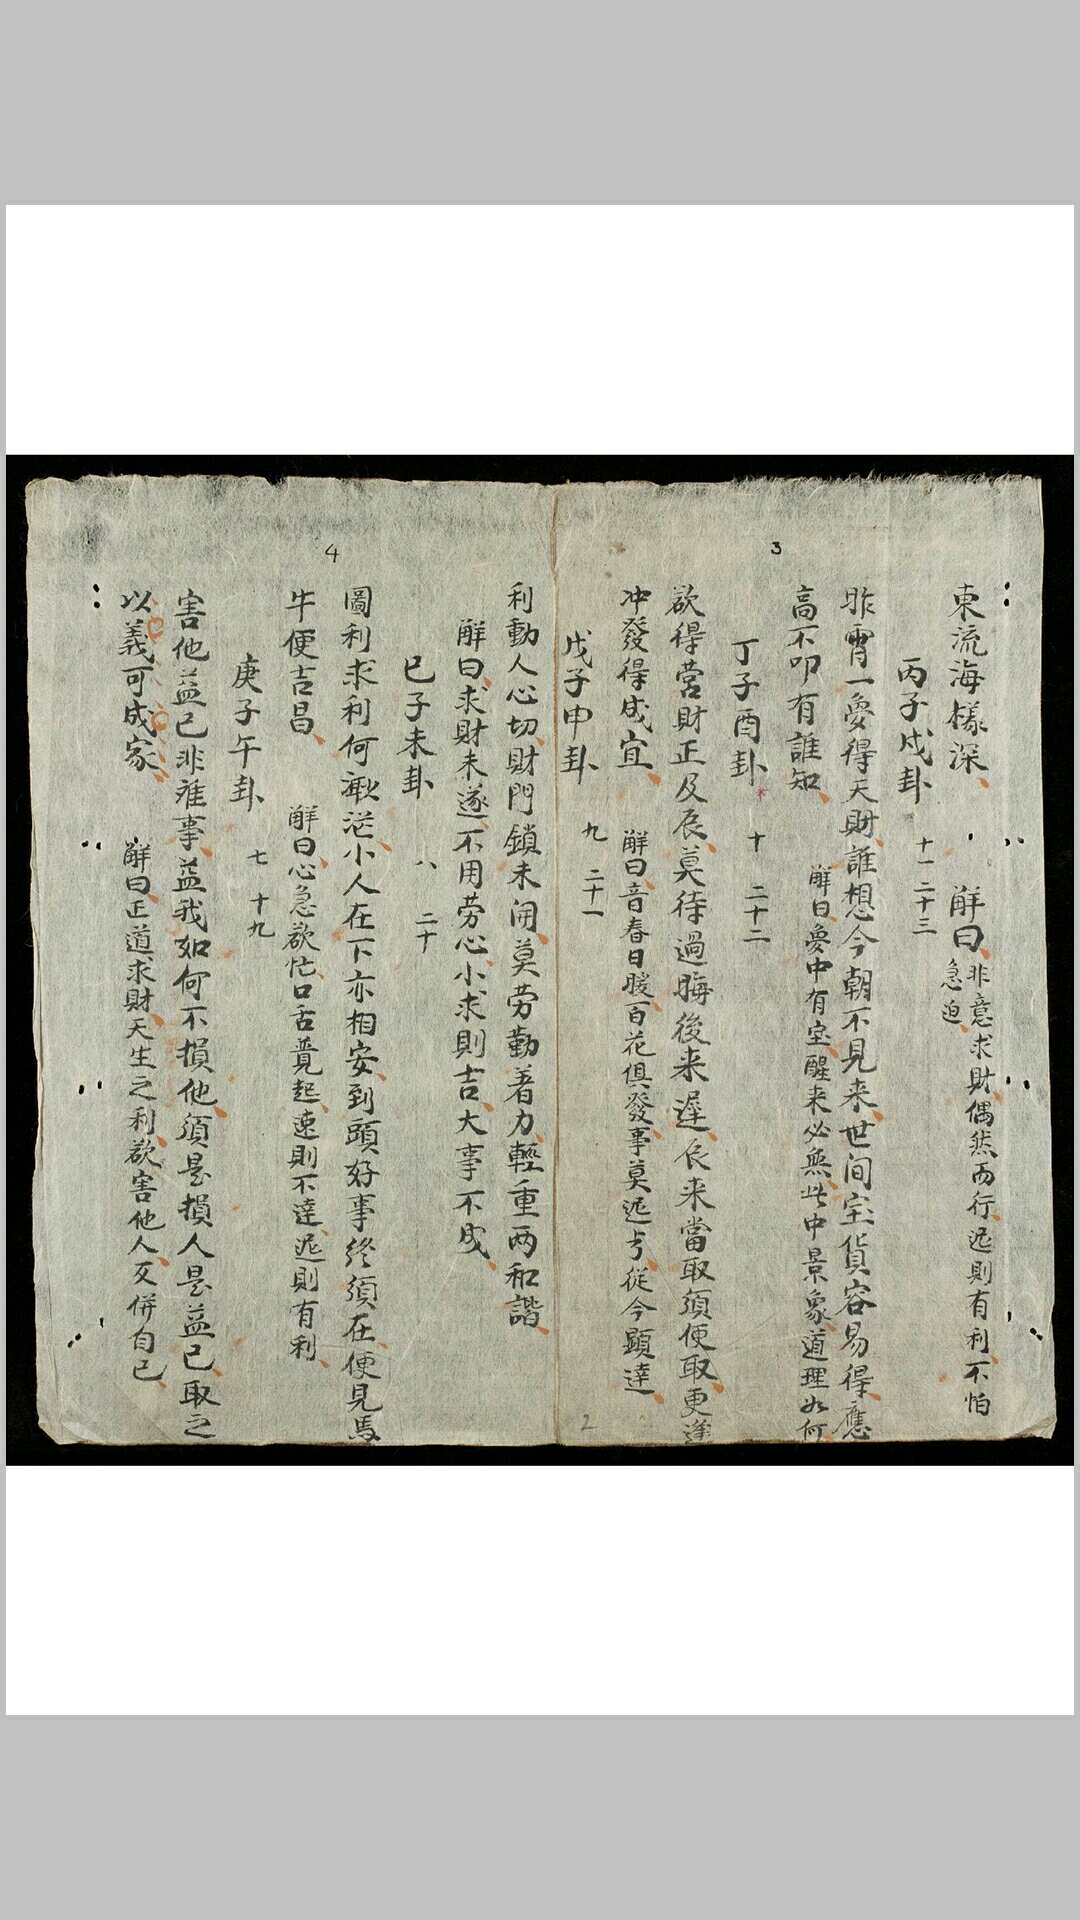 3
東流海樣深
解曰非意求財偶然而行迟則有利不怕
急迫
丙子戍卦 十一 二十三
昨霄一夢得天財誰想今朝不見来世间宝貨容易得應
高不叩有誰知 解曰夢中有宝醒来必無此中景象道理如何
丁子酉卦 十 二十二
欲得营財正及辰莫待過晦後来遲辰来當取須便取更逢
冲發得成宜 解曰音春日暖百花俱發事莫迟亏從今顕達
戊子申卦 九 二十一
2
4
利動人心切財門鎖未闭莫劳勤着力輕重两和諧
解曰求財未遂不用劳心小求則吉大事不成
已子未卦 八 二十
圖利求利何敢茫小人在下亦相安到頭好事終須在便見馬
牛便吉昌 解曰心急欲忙口舌竟起速則不達迟則有利
庚子午卦 七 十九
害他益已非难事益我如何不損他須是損人是益已取之
以義可成家 解曰正道求財天生之利欲害他人反併自已